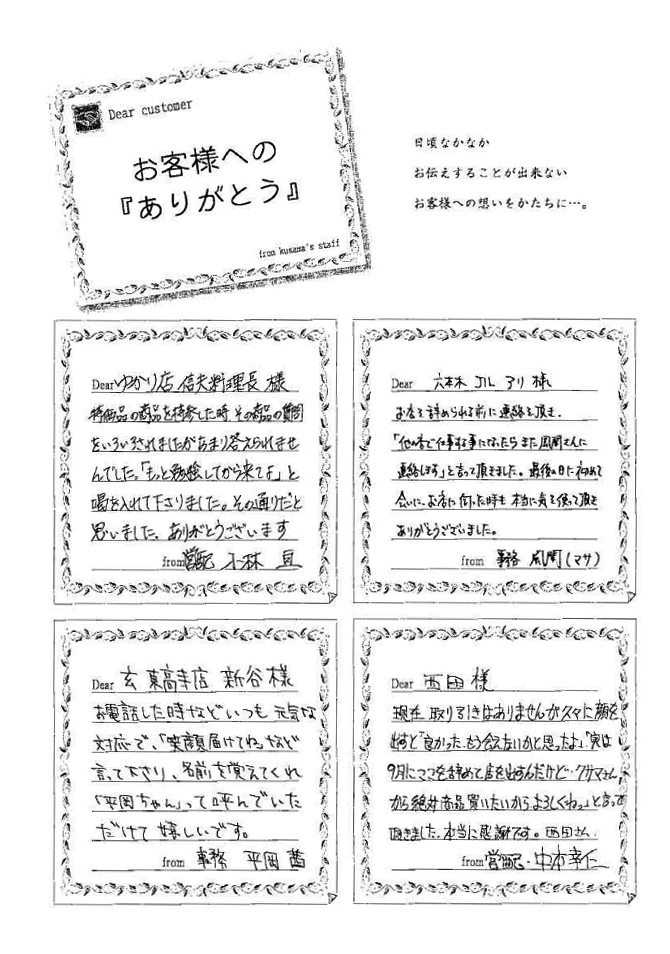 Dear customer
お客様への
『ありがとう』
from kusama's staff
日頃なかなか
お伝えすることが出来ない
お客様への想いをかたちに…。
Dear ゆかり店 信夫料理長 様
特価品の商品を持参した時、その商品の質問
をいろいろされましたがあまり答えられませ
んでした。「もっと勉強してから来てよ」と
喝を入れて下さりました。その通りだと
思いました。ありがとうございます
from 営配 小林 亘
Dear 六本木 JIL アリ 様
お店を辞められる前に連絡を頂き、
「他の店で仕事する事になったらまた風間さんに
連絡します」と言って頂きました。最後の日に初めて
会いに、お店に伺った時も本当に気を使って頂き
ありがとうございました。
from 事務 風間(マサ)
Dear 玄 東高幸店 新谷様
お電話した時などいつも元気な
対応で、「笑顔届けてね」など
言って下さり、名前を覚えてくれ
「平岡ちゃん」って呼んでいた
だけて嬉しいです。
from 事務 平岡 茜
Dear 西田 様
現在取り引きはありませんが久々に顔を
出すと「良かった、もう会えないかと思ったよ」「実は
9月にママを辞めて店を出すんだけど…クサマさん
から絶対商品買いたいからよろしくねっ」と言って
頂きました。本当に感謝です。西田さん。
from 営配・中本幸仁